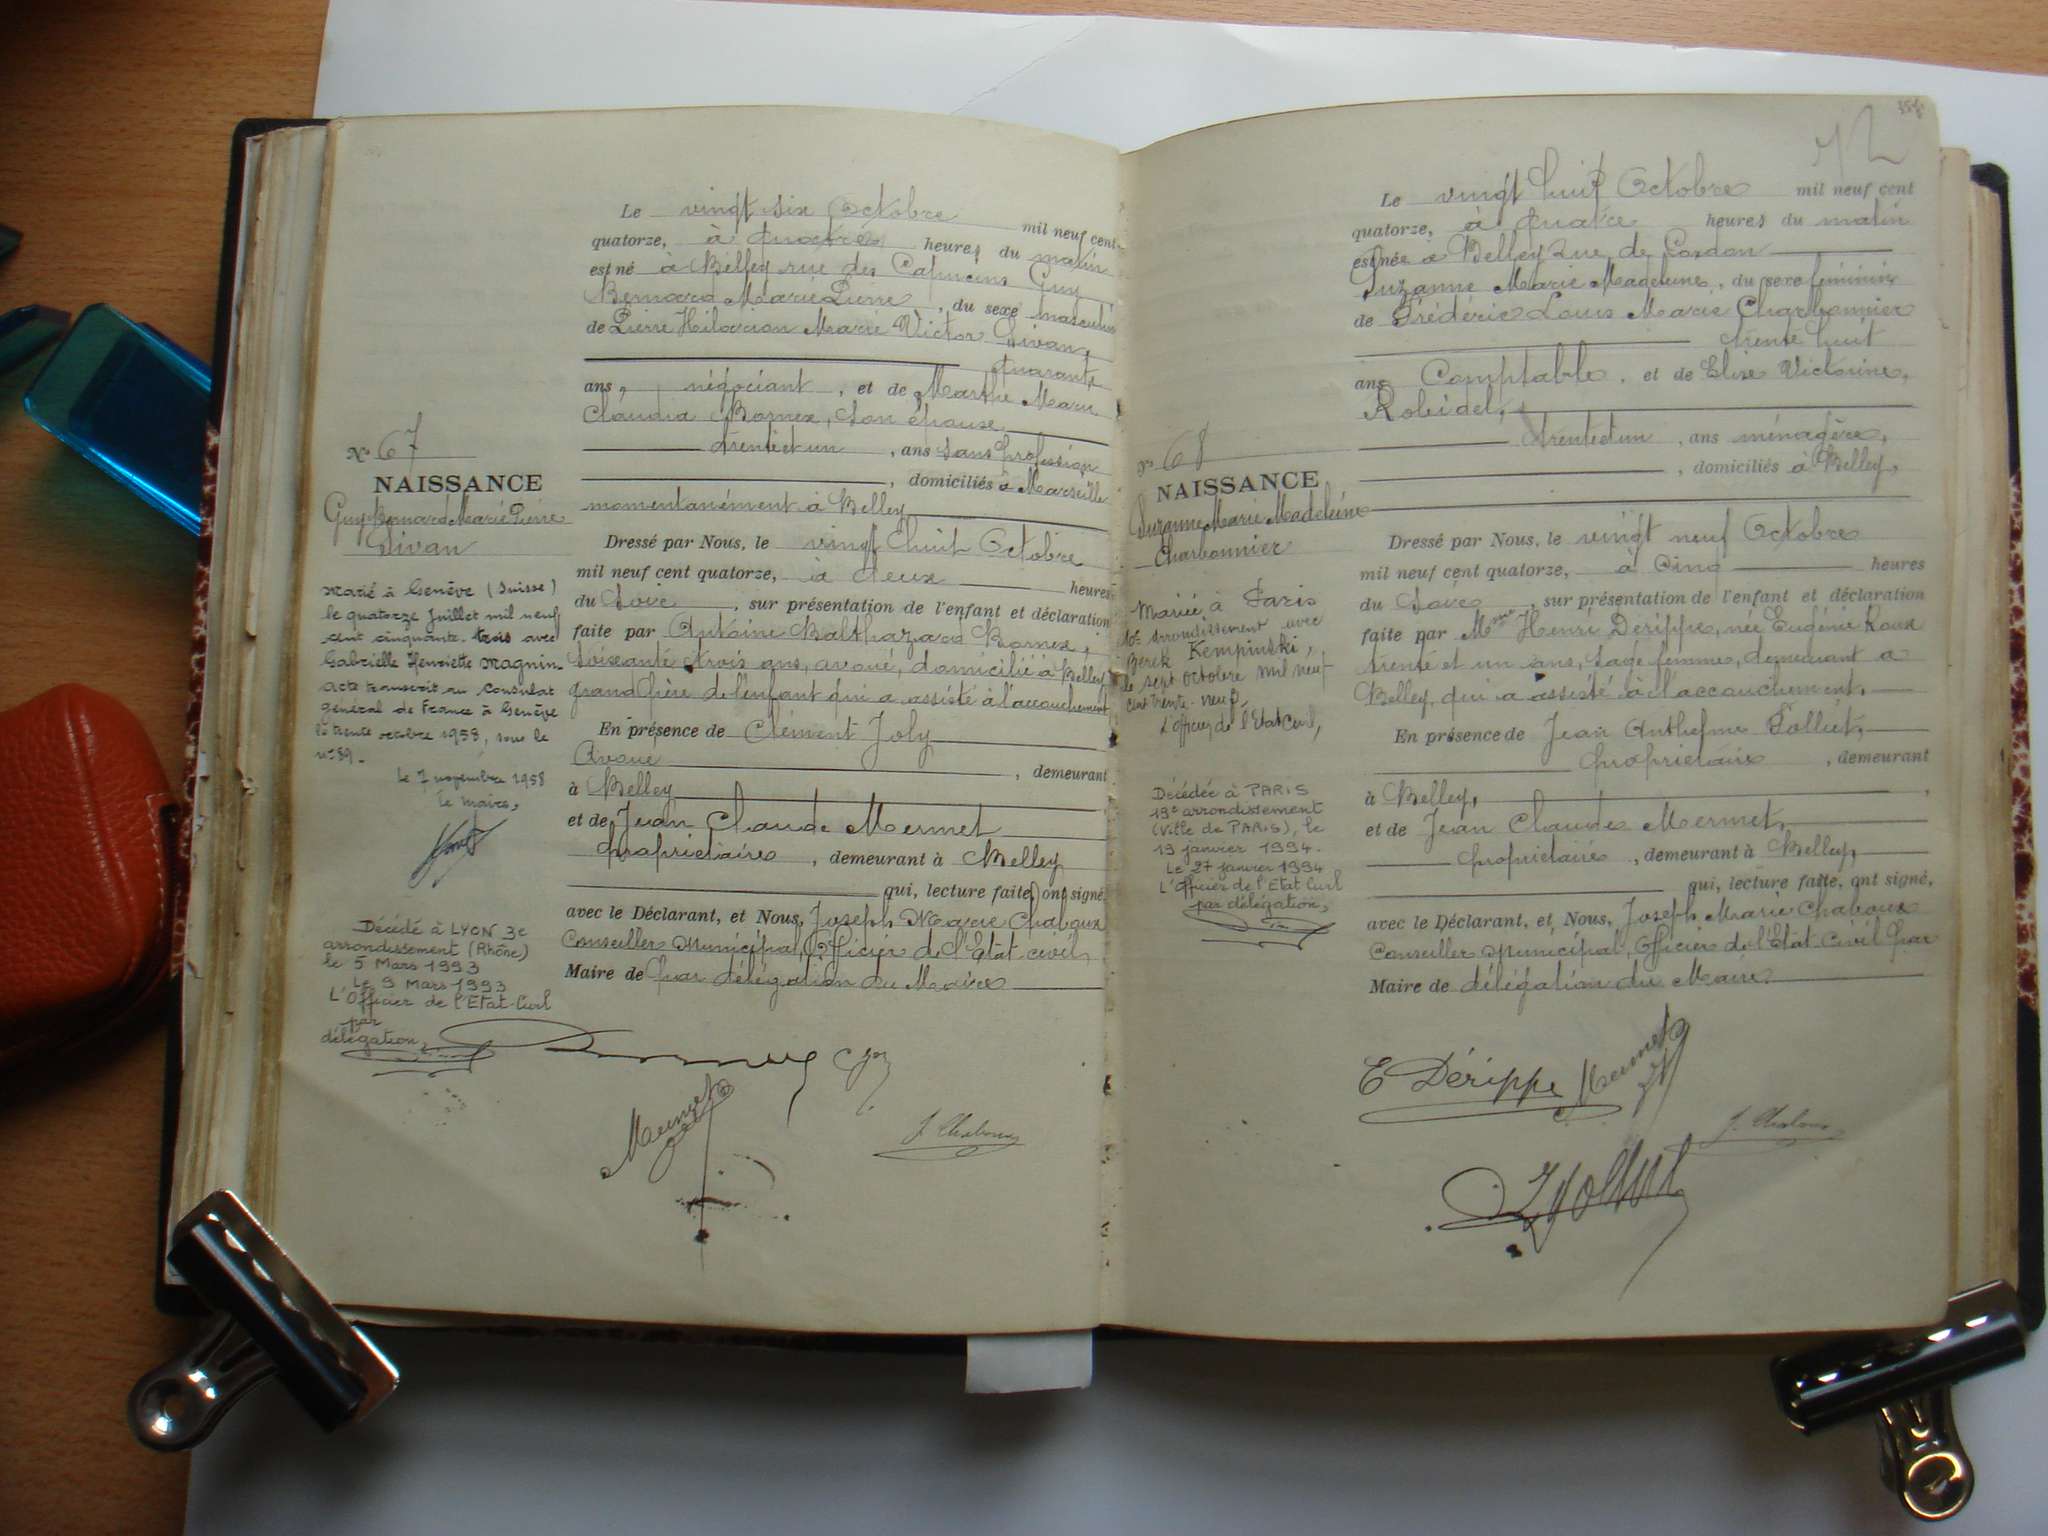 Le vingt six Octobre mil neuf cent
quatorze, à quatre heures du matin
est né à Belley rue des Capucins Guy
Bernard Marie Pierre, du sexe masculin
de Pierre Hilarion Marie Victor Sivan,
quarante
ans, négociant, et de Marthe Marie
Claudia Bornex, son épouse
trente et un, ans sans profession
, domiciliés à Marseille
momentanément à Belley
Dressé par Nous, le vingt huit Octobre
mil neuf cent quatorze, à deux heures
du Soir, sur présentation de l'enfant et déclaration
faite par Antoine Balthazard Bornex,
soixante trois ans, avoué, domicilié à Belley
grand père de l'enfant qui a assisté à l'accouchement
En présence de Clément Joly
Avoué, demeurant
à Belley
et de Jean Claude Mermet
propriétaire, demeurant à Belley
qui, lecture faite, ont signé
avec le Déclarant, et Nous, Joseph Marie Chaboux
Conseiller Municipal, Officier de l'Etat civil
Maire de par délégation du Maire
Mermet
J. Chaboux
N° 67
NAISSANCE
Guy Bernard Marie Pierre
Sivan
Marié à Genève (Suisse)
le quatorze Juillet mil neuf
cent cinquante-trois avec
Gabrielle Henriette Magnin
Acte transcrit au Consulat
général de France à Genève
le trente octobre 1958, sous le
n° 89.
Le 7 novembre 1958
le maire,
Décédé à LYON 3e
arrondissement (Rhône)
le 5 Mars 1993
Le 9 Mars 1993
L'Officier de l'Etat-Civil
par
délégation,
Le vingt huit Octobre mil neuf cent
quatorze, à quatre heures du matin
est née à Belley rue de Cordon
Suzanne Marie Madeleine, du sexe féminin
de Frédéric Louis Marie Charbonnier
trente huit
ans Comptable, et de Elise Victorine,
Robidel,
trente et un, ans ménagère,
, domiciliés à Belley,
Dressé par Nous, le vingt neuf Octobre
mil neuf cent quatorze, à cinq heures
du Soir, sur présentation de l'enfant et déclaration
faite par Mme Henri Derippe, née Eugénie Roux
trente et un ans, sage femme, demeurant à
Belley, qui a assisté à l'accouchement,
En présence de Jean Anthelme Tolliet,
propriétaire, demeurant
à Belley,
et de Jean Claude Mermet,
propriétaire, demeurant à Belley,
qui, lecture faite, ont signé,
avec le Déclarant, et Nous, Joseph Marie Chaboux
Conseiller Municipal, Officier de l'Etat civil par
Maire de délégation du Maire
E Dérippe
Mermet
J. Chaboux
N° 68
NAISSANCE
Suzanne Marie Madeleine
Charbonnier
Mariée à Paris
arrondissement avec
Berek Kempinski,
le sept octobre mil neuf
cent trente-neuf,
L'officier de l'Etat Civil,
Décédée à PARIS
19e arrondissement
(Ville de PARIS), le
19 janvier 1994.
Le 27 janvier 1994
L'Officier de l'Etat Civil
par délégation,